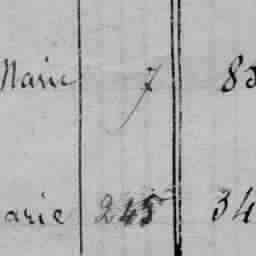 Marie 7
arie 245 34